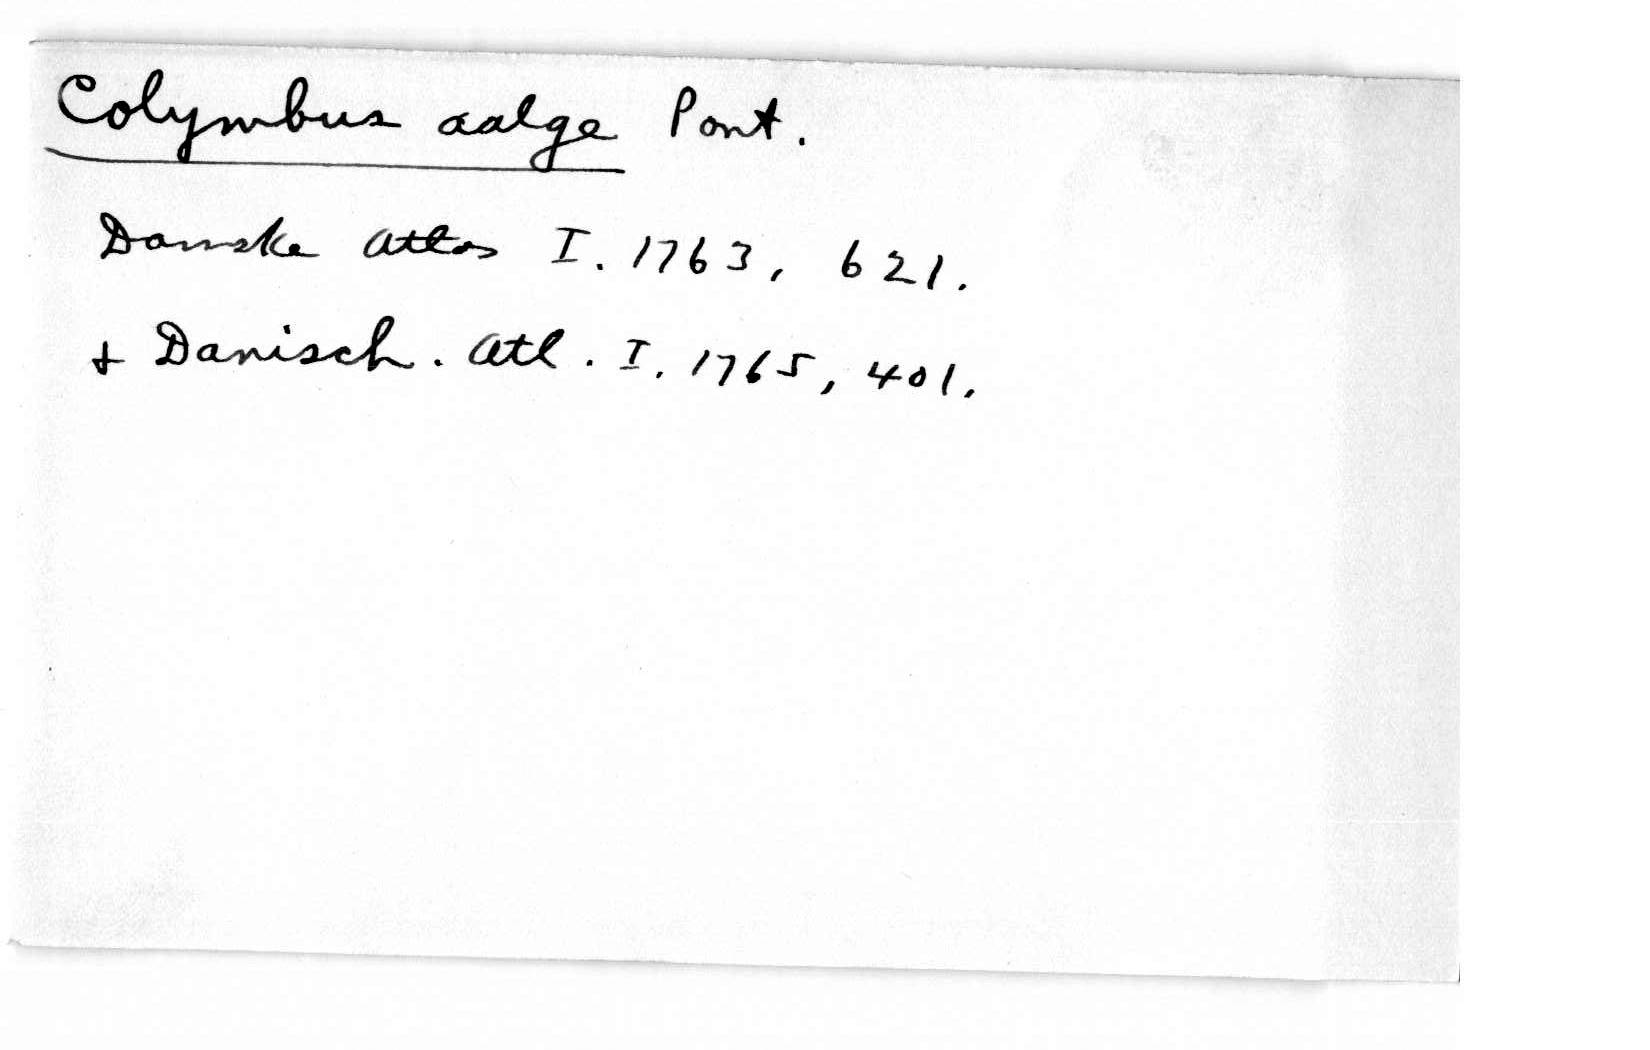 Colymbus aalge Pont.
Danske Atlas I. 1763, 621.
& Danisch. Atl. I. 1765, 401.